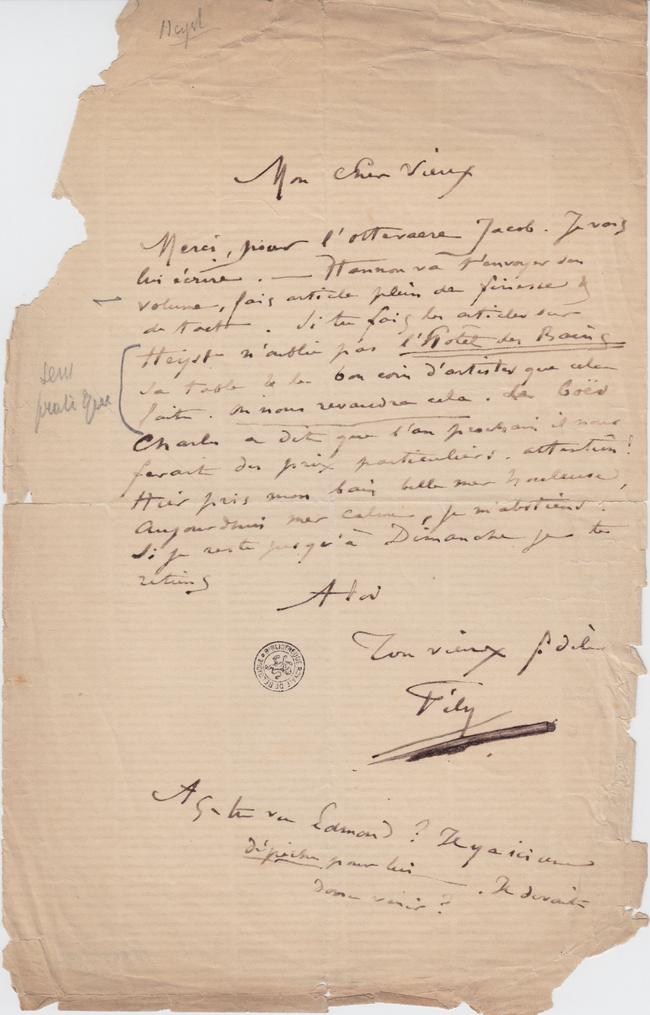 Heyst
Mon cher vieux
Merci, pour l'ottevaere Jacob. Je vais
lui écrire. — Hannon va t'envoyer son
volume, fais article plein de finesse &
de tact. Si tu fais les articles sur
Heyst n'oublie pas l'Hotel des Bains
sa table & le bon coin d'artistes que cela
fait. on nous revaudra cela. Le
Charles a dit que l'an prochain il nous
ferait des prix particuliers. attention!
Hier pris mon bain belle mer houleuse,
aujourdhui mer calme, je m'abstiens.
Si je reste jusqu'à Dimanche je te
retiens
A toi
Ton vieux fidèle
Fély
sens
pratique
As-tu vu Edmond? Il y a ici une
dépêche pour lui. Il devait
donc venir?
BIBLIOTHEQUE ROYALE DE BELGIQUE